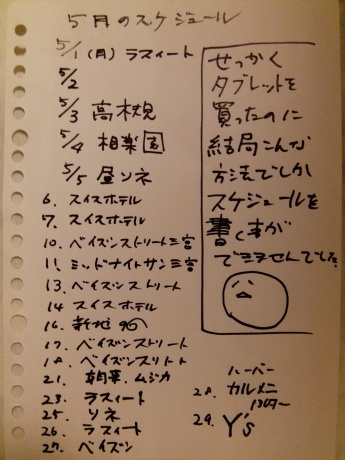 5月のスケジュール
5/1(月)ラスィート
5/2
5/3 高木規
5/4 相楽園
5/5 昼ソネ
6. スイスホテル
7. スイスホテル
10. ベイズンストリート三宮
11. ミッドナイトサン三宮
13. ベイズンストリート
14 スイスホテル
16. 新地
17. ベイズンストリート
18. ベイズンスリトト
21. 朝革. ムジカ
23. ラスィート
25. ソネ
26. ラスィート
27. ベイズン
せっかく
タブレットを
買ったのに
結局こんな
方法でしか
スケジュールを
書く事が
できませんでした。
ハーバー
28. カルメニ
29. Y's